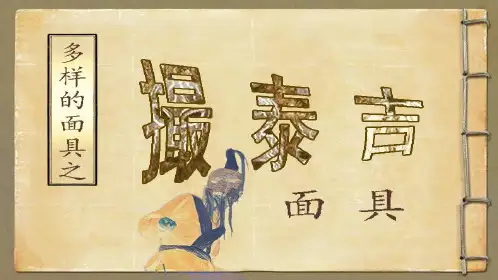 多样的面具之
撮泰吉
面具